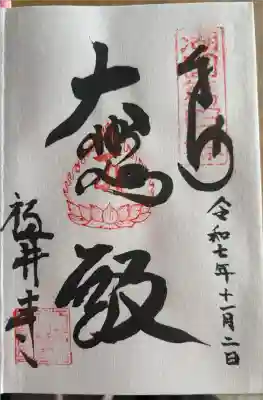 奉拝
令和七年十一月二日
大悲殿
葛井寺